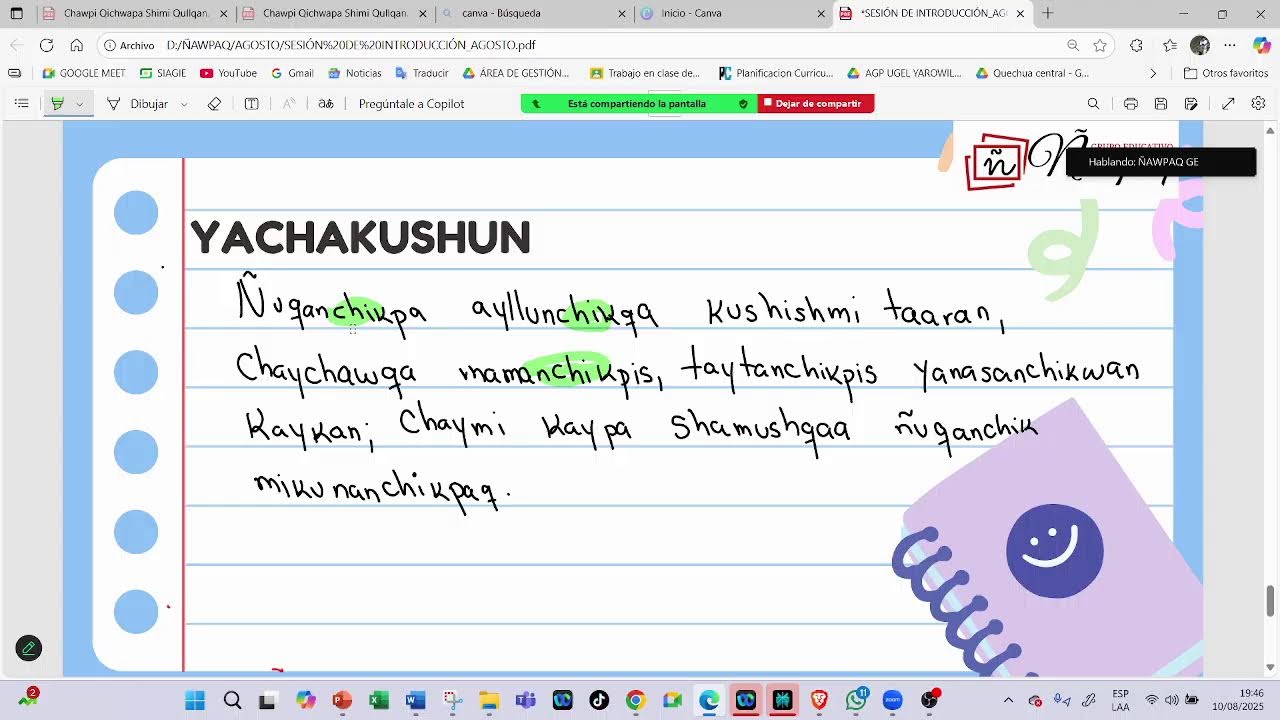 Chawpi Qichwapa Shimi Qullqan.
Chawpi Qichwapa Shimi Qullqan.
canva - Búsqueda
Inicio - Canva
*SESIÓN DE INTRODUCCIÓN_AG
Archivo D:/ÑAWPAQ/AGOSTO/SESIÓN%20DE%20INTRODUCCIÓN_AGOSTO.pdf
GOOGLE MEET SIAGIE YouTube Gmail Noticias Traducir ÁREA DE GESTIÓN... Trabajo en clase de... Planificacion Curricu... AGP UGEL YAROWIL... Quechua central - G... Otros favoritos
Dibujar Pregúntale a Copilot Está compartiendo la pantalla Dejar de compartir
ñ
GRUPO EDUCATIVO
Hablando: ÑAWPAQ GE
YACHAKUSHUN
Ñuqanchikpa ayllunchikqa kushishmi taaran,
Chaychawqa mamanchikpis, taytanchikpis yanasanchikwan
Kaykan; Chaymi kaypa shamushqaa ñuqanchik
mikunanchikpaq.
2
11
zoom
ESP
LAA
19:46
10/08/2025